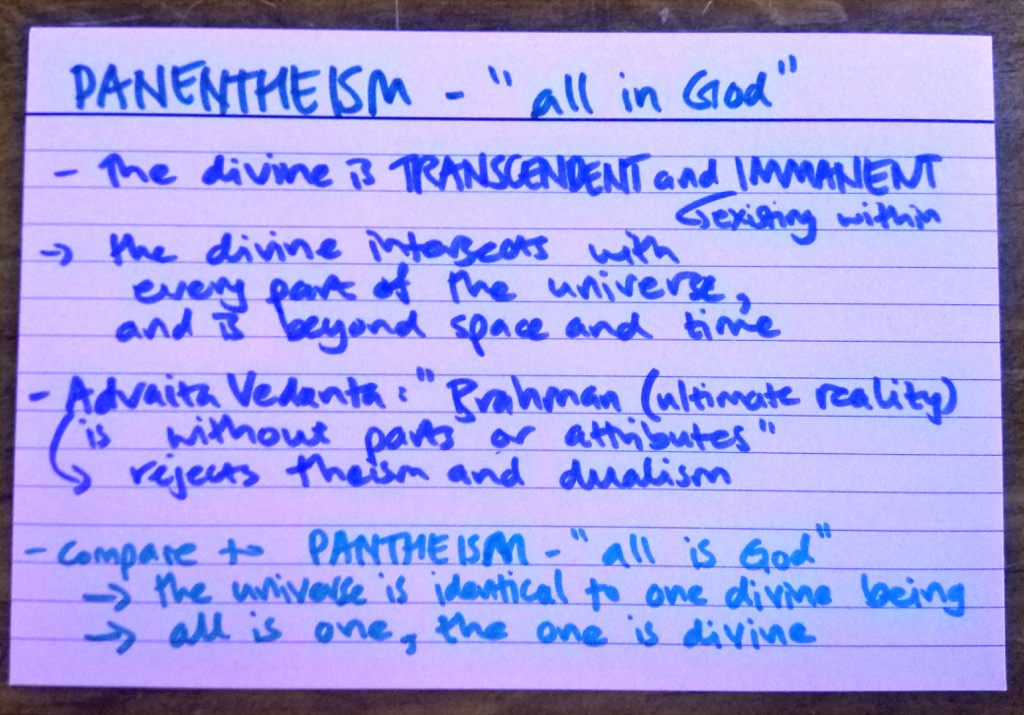 PANENTHEISM - "all in God"
- the divine is TRANSCENDENT and IMMANENT
existing within
→ the divine intersects with
every part of the universe,
and is beyond space and time
- Advaita Vedanta: "Brahman (ultimate reality)
is without parts or attributes"
↳ rejects theism and dualism
- compare to PANTHEISM - "all is God"
→ the universe is identical to one divine being
→ all is one, the one is divine